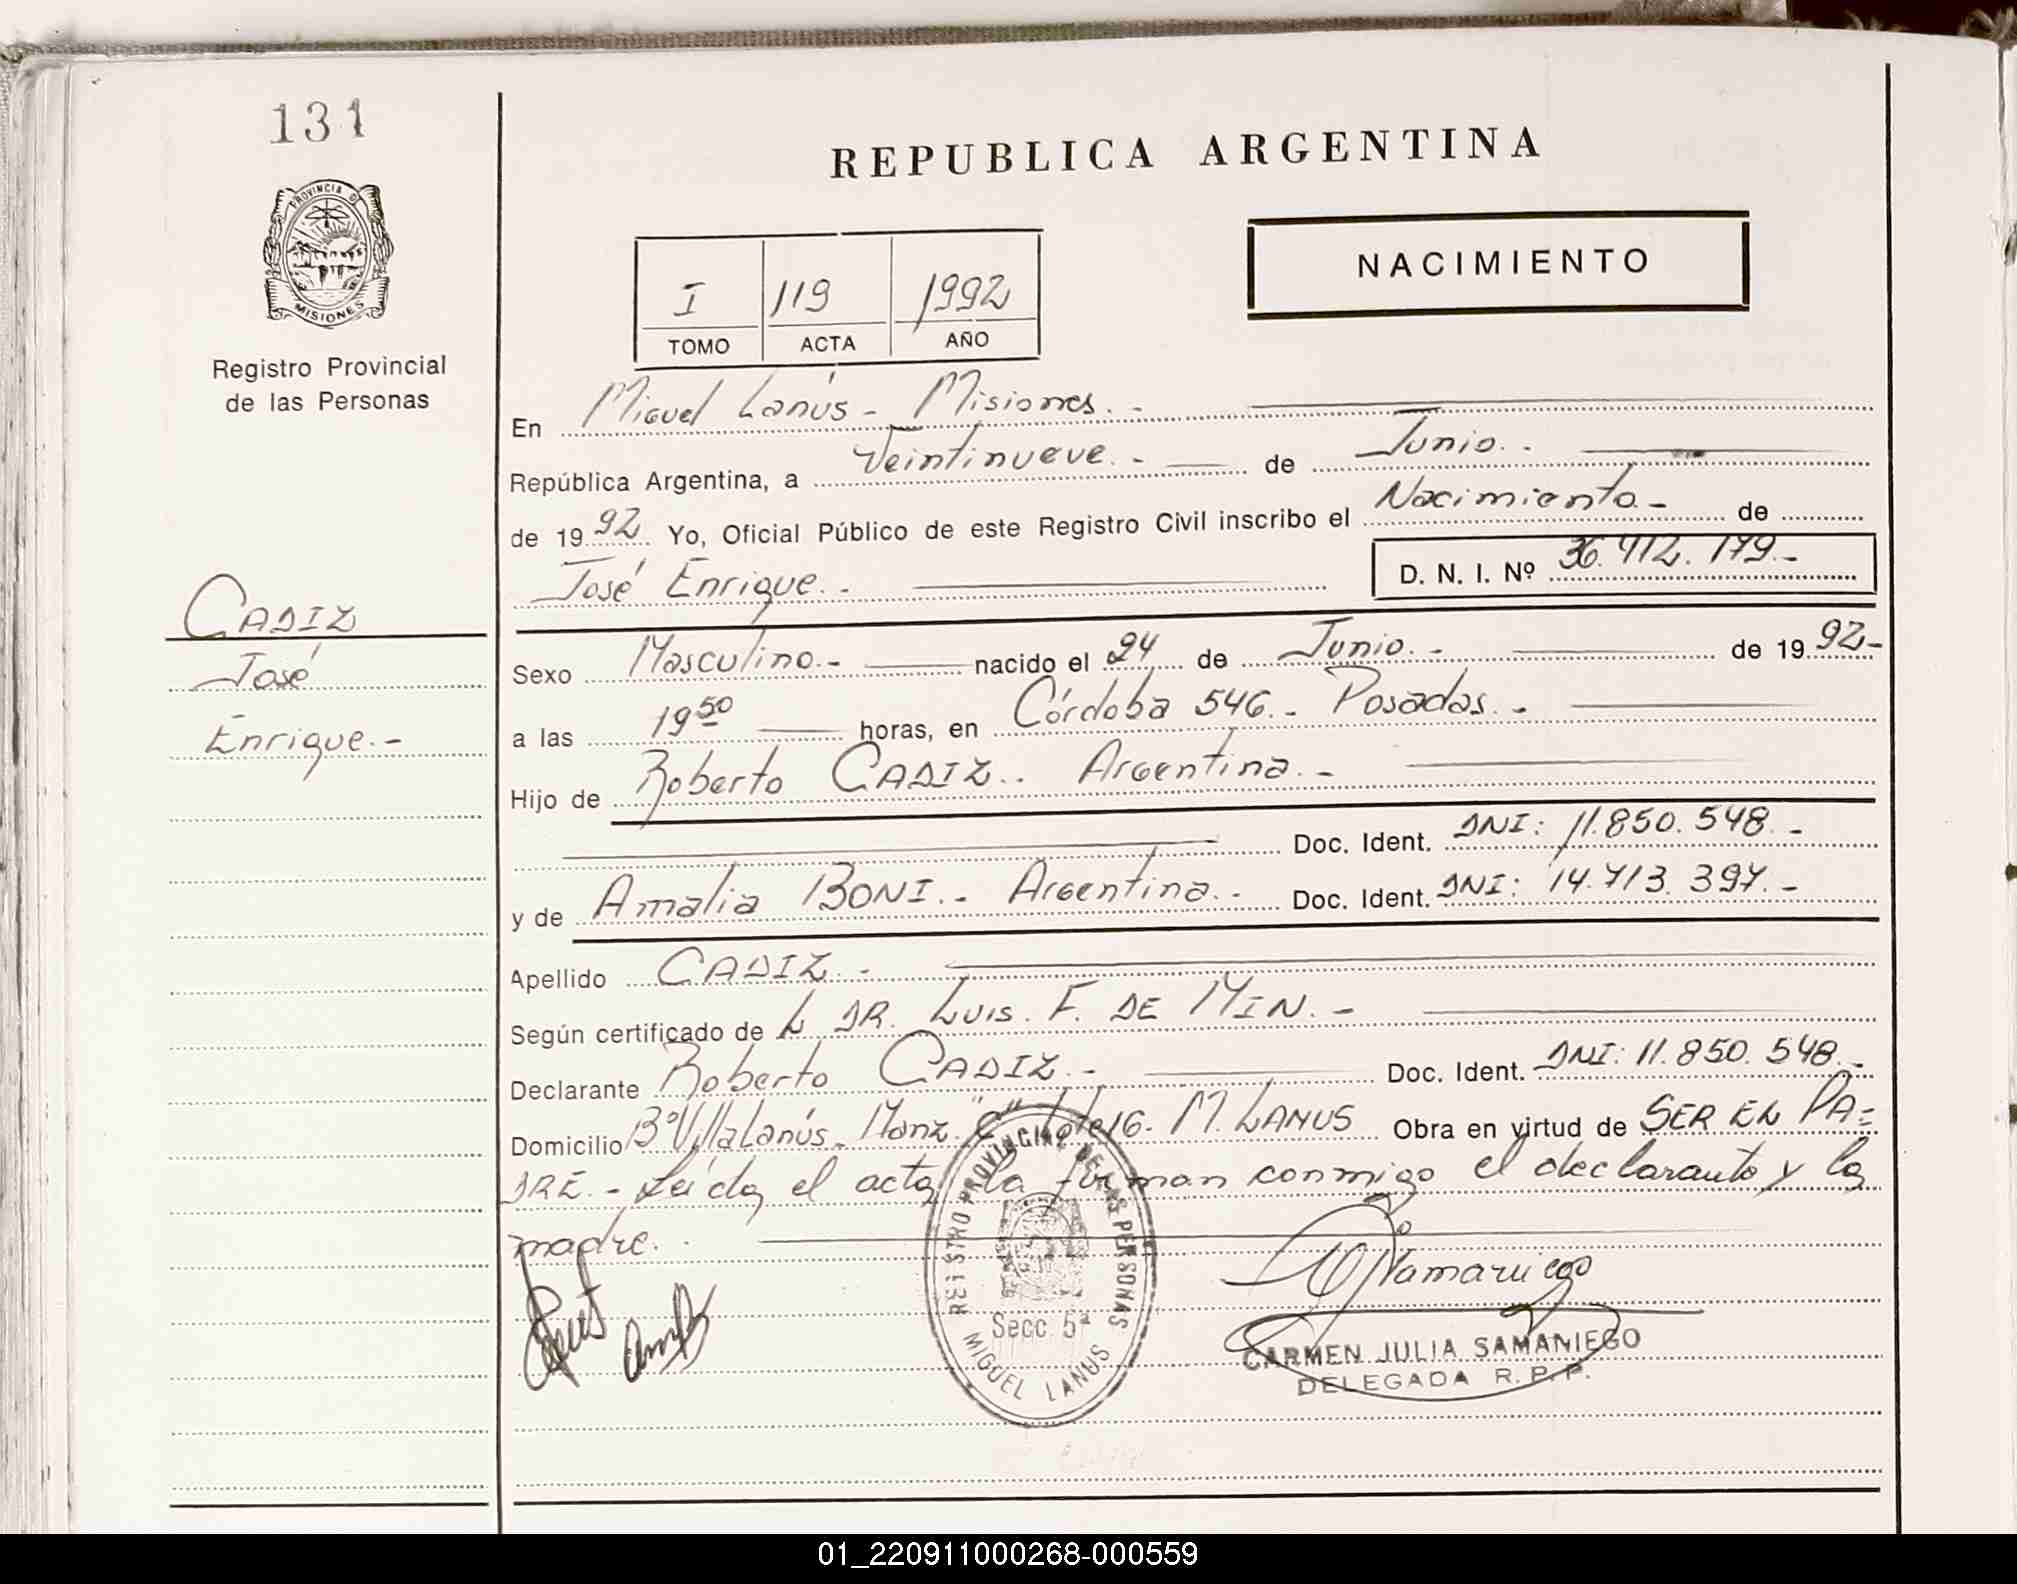 131
PROVINCIA D
MISIONES
Registro Provincial
de las Personas
CADIZ
José
Enrique.-
REPUBLICA ARGENTINA
I 119 1992
TOMO ACTA AÑO
NACIMIENTO
En Miguel Lanús - Misiones. -
República Argentina, a Veintinueve. - de Junio. -
de 1992. Yo, Oficial Público de este Registro Civil inscribo el Nacimiento - de
José Enrique. - D. N. I. Nº 36.412.179.-
Sexo Masculino.- nacido el 24 de Junio.- de 1992-
a las 19 50 horas, en Córdoba 546.- Posadas.-
Hijo de Roberto CADIZ.. Argentina.-
Doc. Ident. DNI: 11.850.548.-
y de Amalia BONI.- Argentina.- Doc. Ident. DNI: 14.713.397.-
Apellido CADIZ.-
Según certificado de L DR. LUIS. F. DE MIN.-
Declarante Roberto CADIZ.- Doc. Ident. DNI: 11.850.548.-
Domicilio Bº Villa Lanús. Manz. "C" lote 16. M. LANUS Obra en virtud de SER EN PA=
DRE.- Leída el acta la firman conmigo el declarante y la
madre.
REGISTRO PROVINCIAL DE LAS PERSONAS
Secc. 5ª
MIGUEL LANUS
CARMEN JULIA SAMANIEGO
DELEGADA R.P.P.
01_220911000268-000559